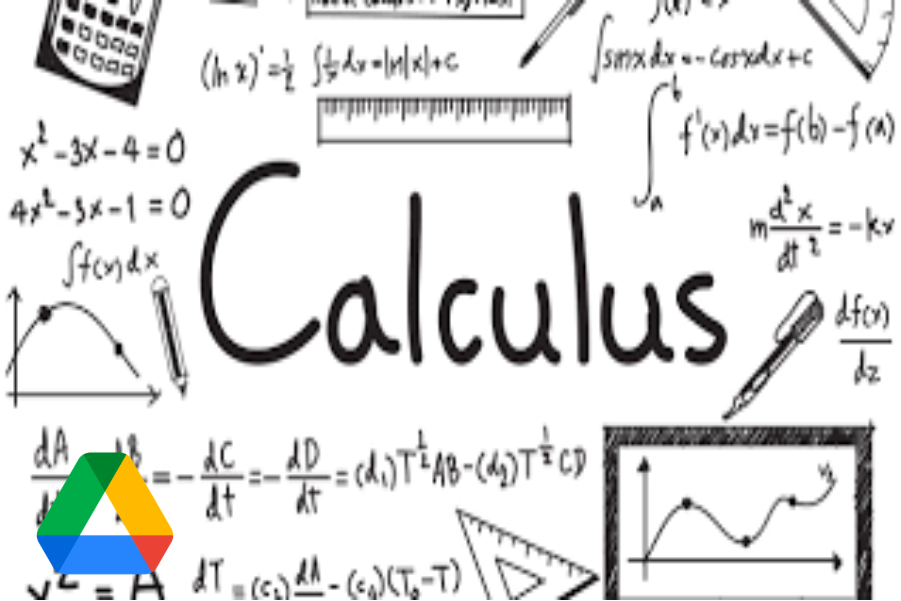 (ln x)' = 1/2 ∫1/x dx = ln|x| + c
∫sinx dx = - cosxdx + c
∫_a^b f'(x) dx = f(b) - f(a)
x² - 3x - 4 = 0
4x² - 3x - 1 = 0
Calculus
m d²x/dt² = - kx
∫f(x) dx
df(x)/dz
= - dC/dt = - dD/dt = (d₁)T^½ AB - (d₂)T^½ CD
dT = (c₃) dA - (c₄)(T₀ - T)